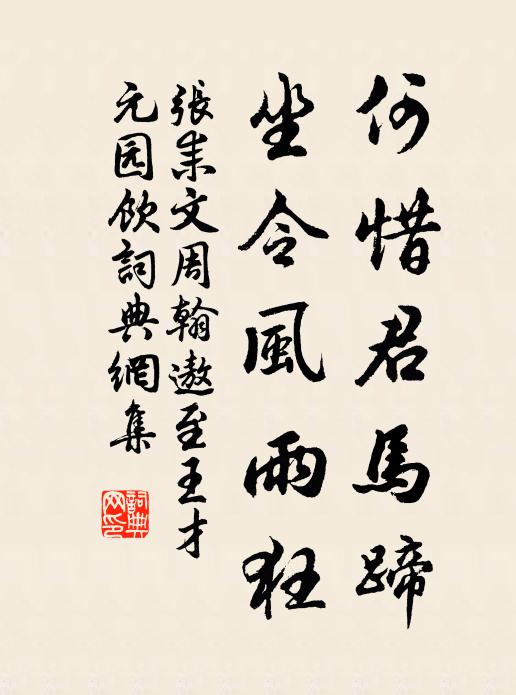 何惜君馬蹄
坐令風雨狂
張耒文周翰邀至王才
元园飲詞典網集
詞典
网印